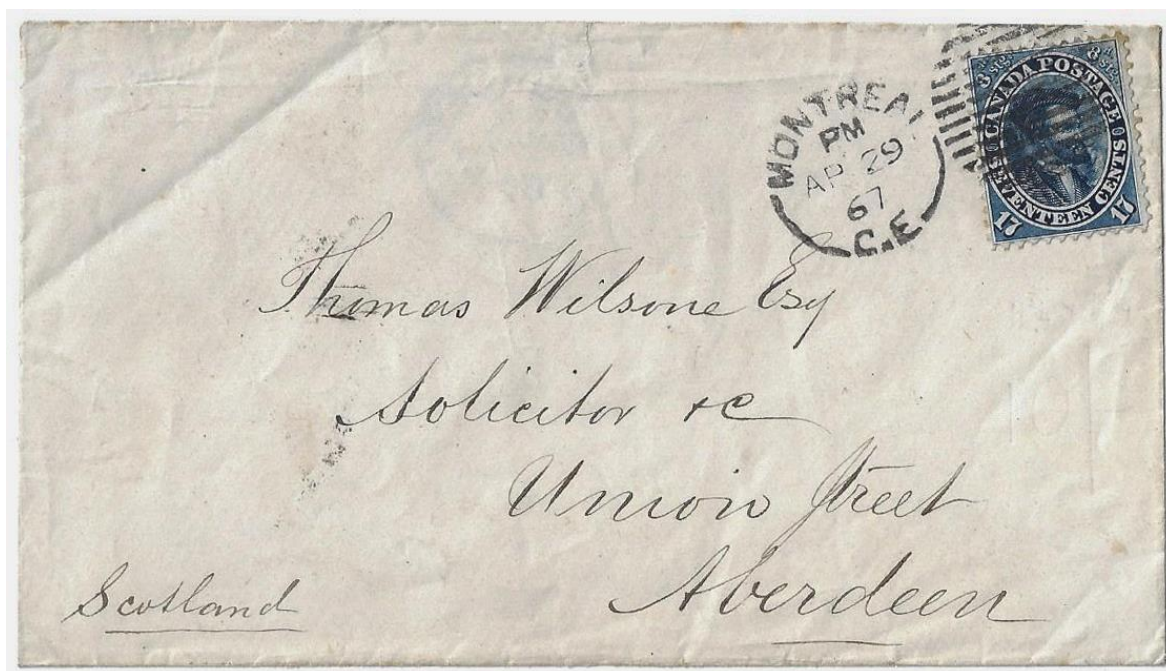 MONTREAL
PM
AP 29
67
C.E
8d Stg. 8d Stg.
CANADA POSTAGE
SEVENTEEN CENTS
17 17
Thomas Wilsone Esq
Solicitor &c
Union Street
Aberdeen
Scotland